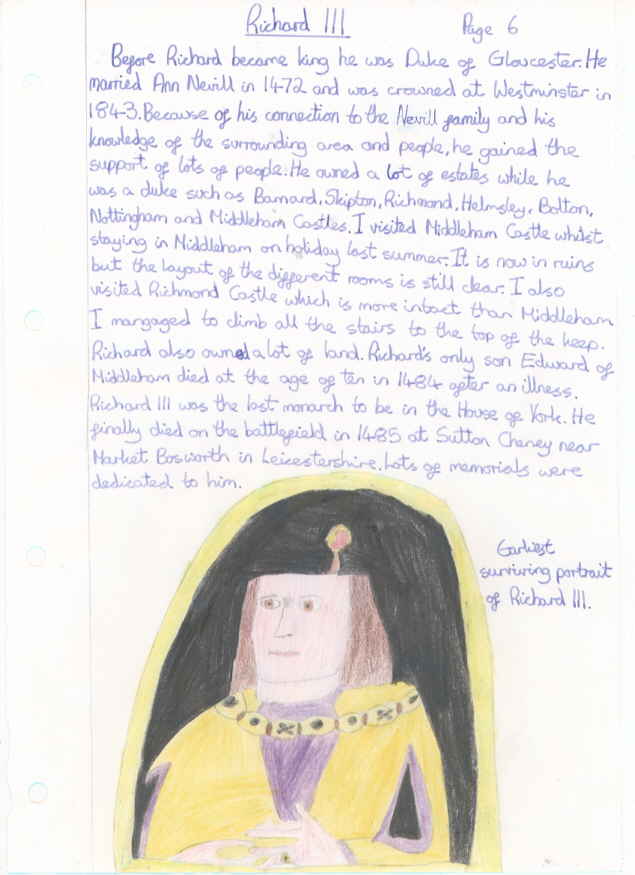 Richard III Page 6
Before Richard became king he was Duke of Gloucester. He
married Ann Nevill in 1472 and was crowned at Westminster in
1843. Because of his connection to the Nevill family and his
knowledge of the surrounding area and people, he gained the
support of lots of people. He owned a lot of estates while he
was a duke such as Barnard, Skipton, Richmond, Helmsley, Bolton,
Nottingham and Middleham Castles. I visited Middleham Castle whilst
staying in Middleham on holiday last summer. It is now in ruins
but the layout of the different rooms is still clear. I also
visited Richmond Castle which is more intact than Middleham
I mangaged to climb all the stairs to the top of the keep.
Richard also owned a lot of land. Richard's only son Edward of
Middleham died at the age of ten in 1484 after an illness.
Richard III was the last monarch to be in the House of York. He
finally died on the battlefield in 1485 at Sutton Cheney near
Market Bosworth in Leicestershire. Lots of memorials were
dedicated to him.
Earliest
surviving portrait
of Richard III.